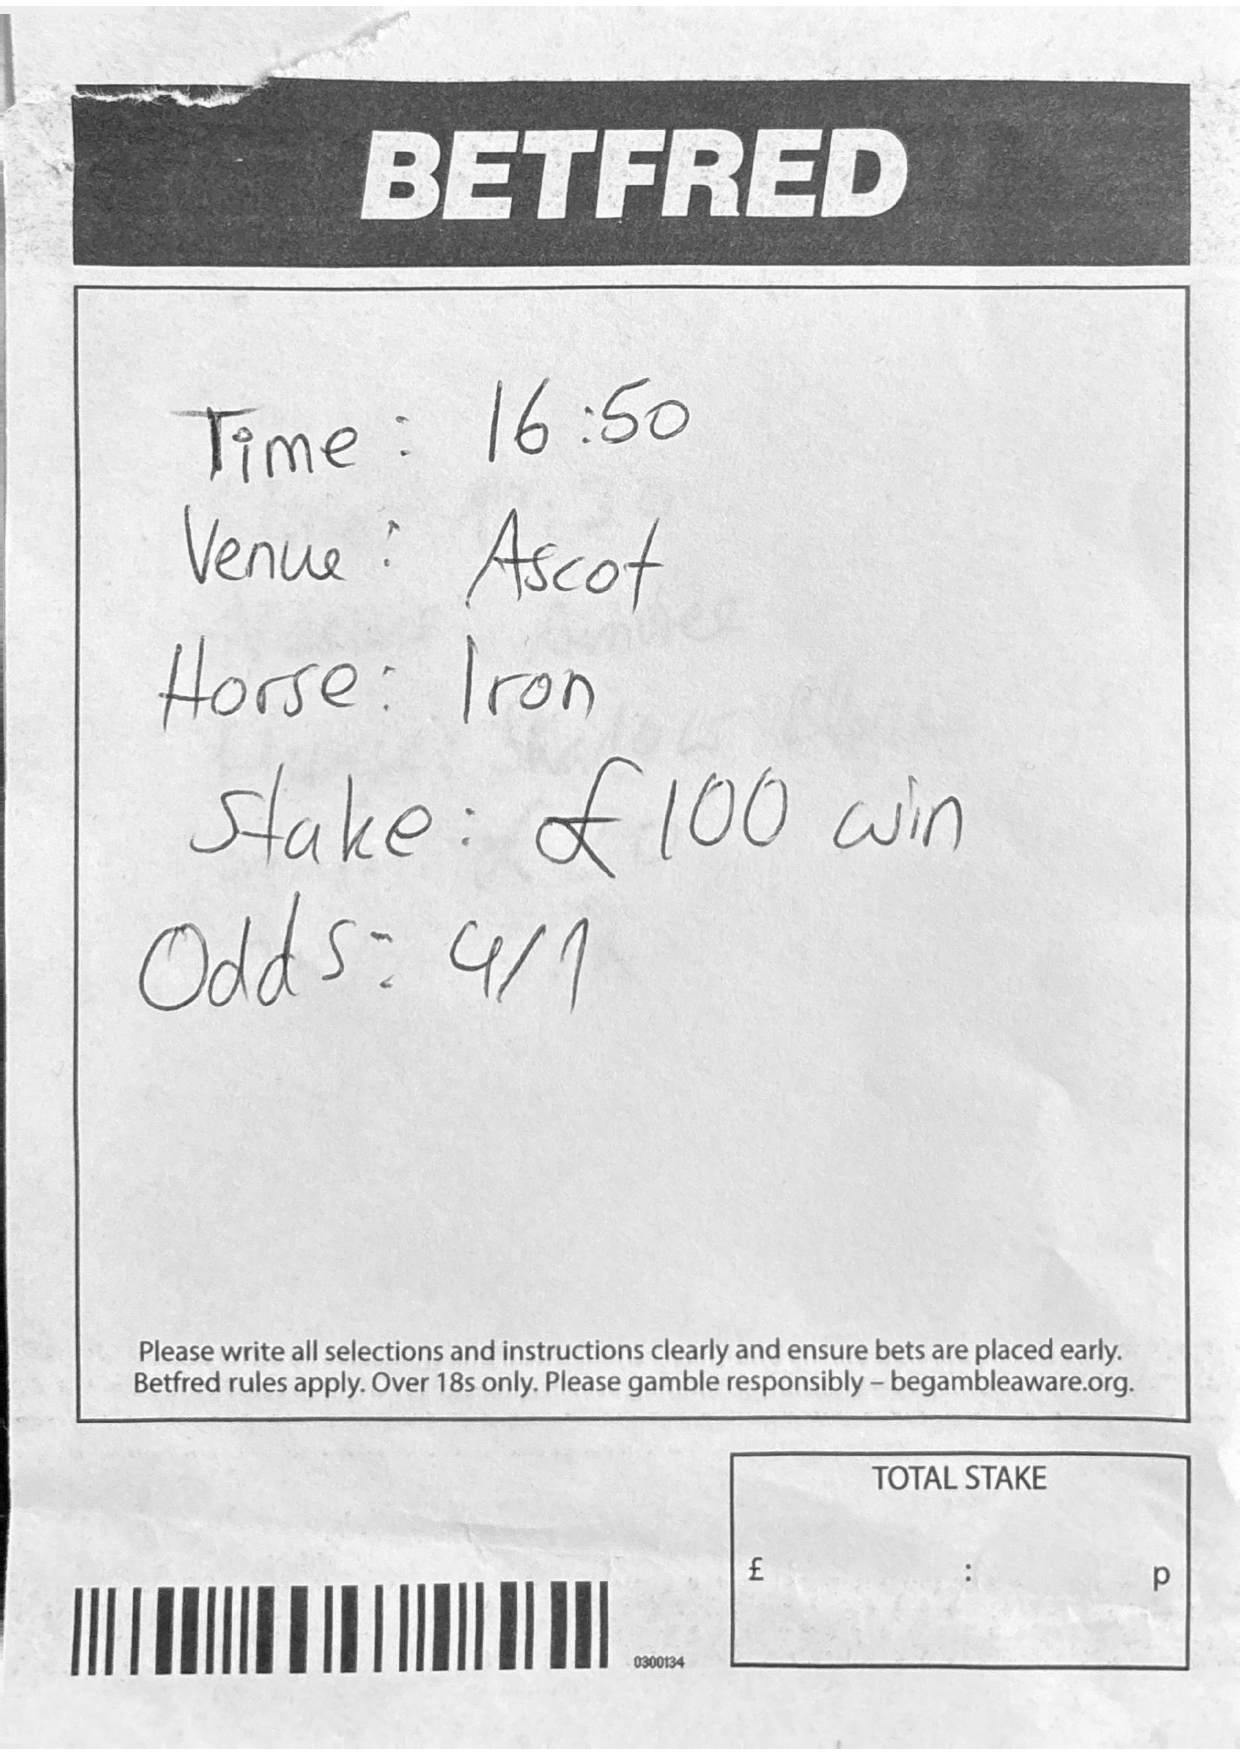 BETFRED
Time: 16:50
Venue: Ascot
Horse: Iron
Stake: £100 win
Odds: 4/1
Please write all selections and instructions clearly and ensure bets are placed early.
Betfred rules apply. Over 18s only. Please gamble responsibly – begambleaware.org.
TOTAL STAKE
£ : p
0300134